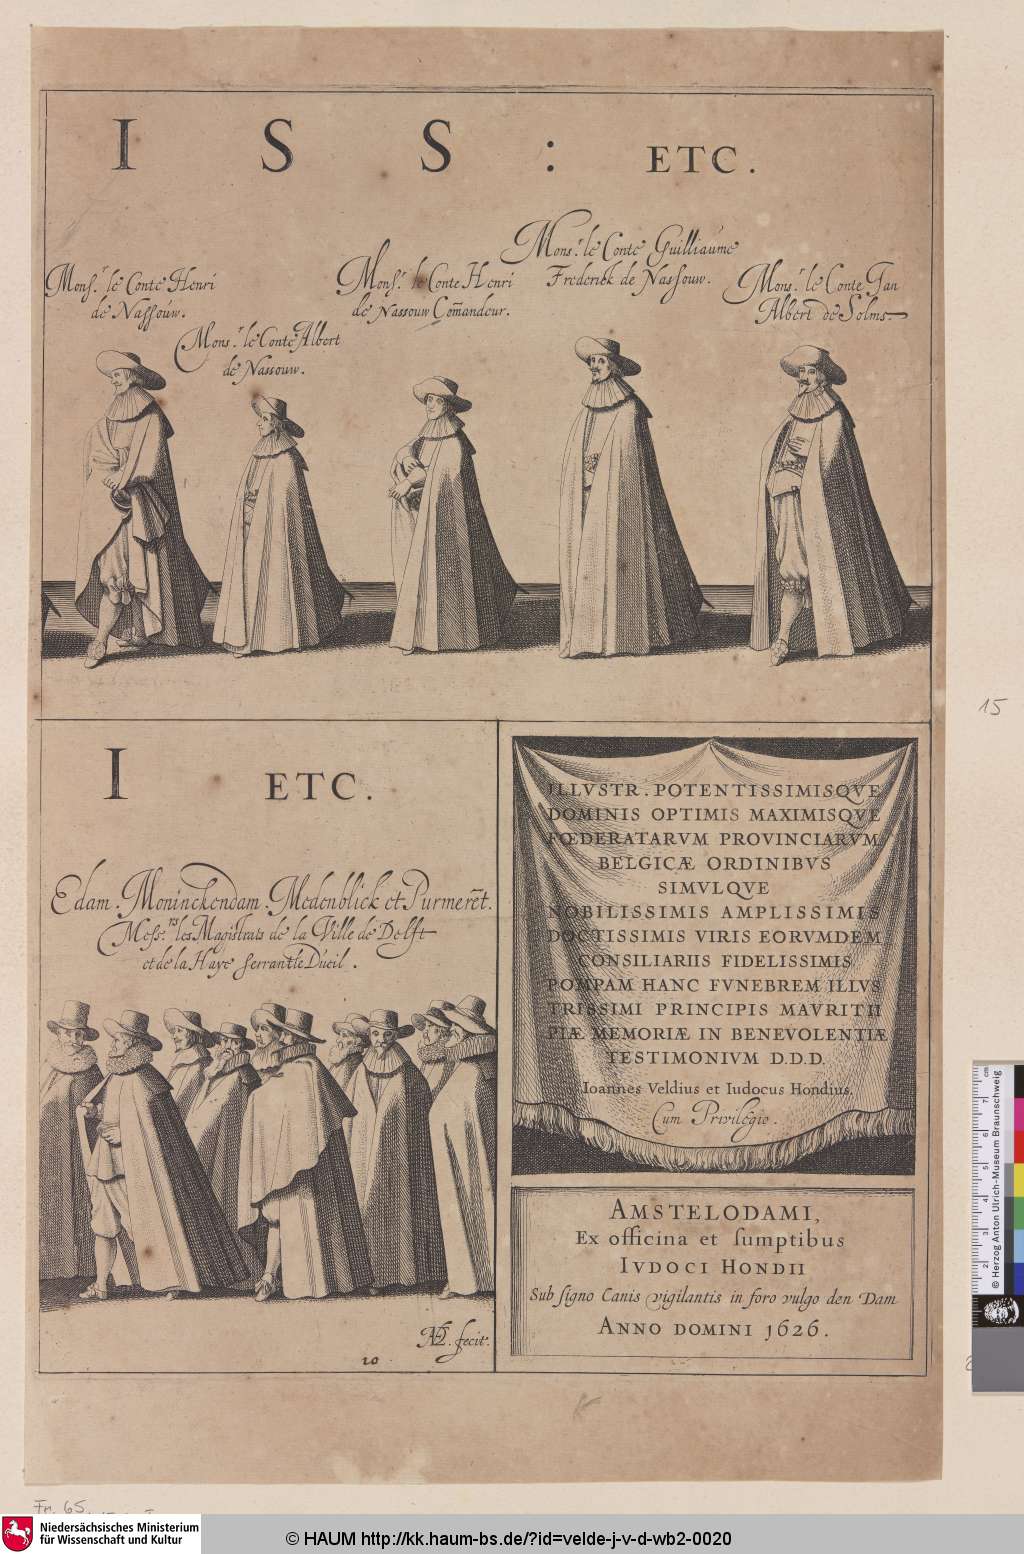 I S S : ETC.
Monsr. le Conte Henri
de Nassouw.
Monsr. le Conte Albert
de Nassouw.
Monsr. le Conte Henri
de Nassouw Com̄andeur.
Monsr. le Conte Guilliaume
Frederick de Nassouw.
Monsr. le Conte Jan
Albert de Solms
I ETC.
Edam. Moninckendam. Medenblick et Purmerēt.
Messrs. les Magistrats de la Ville de Delft
et de la Haye serrant le Dueil.
AV fecit.
20
ILLVSTR. POTENTISSIMISQVE
DOMINIS OPTIMIS MAXIMISQVE
FŒDERATARVM PROVINCIARVM
BELGICÆ ORDINIBVS
SIMVLQVE
NOBILISSIMIS AMPLISSIMIS
DOCTISSIMIS VIRIS EORVMDEM
CONSILIARIIS FIDELISSIMIS
POMPAM HANC FVNEBREM ILLVS
TRISSIMI PRINCIPIS MAVRITII
PIÆ MEMORIÆ IN BENEVOLENTIÆ
TESTIMONIVM D.D.D.
Ioannes Veldius et Iudocus Hondius.
Cum Privilegio.
AMSTELODAMI,
Ex officina et sumptibus
IVDOCI HONDII
Sub signo Canis vigilantis in foro vulgo den Dam
ANNO DOMINI 1626.
15
Fr. 65
cm
© Herzog Anton Ulrich-Museum Braunschweig
Niedersächsisches Ministerium
für Wissenschaft und Kultur
© HAUM http://kk.haum-bs.de/?id=velde-j-v-d-wb2-0020